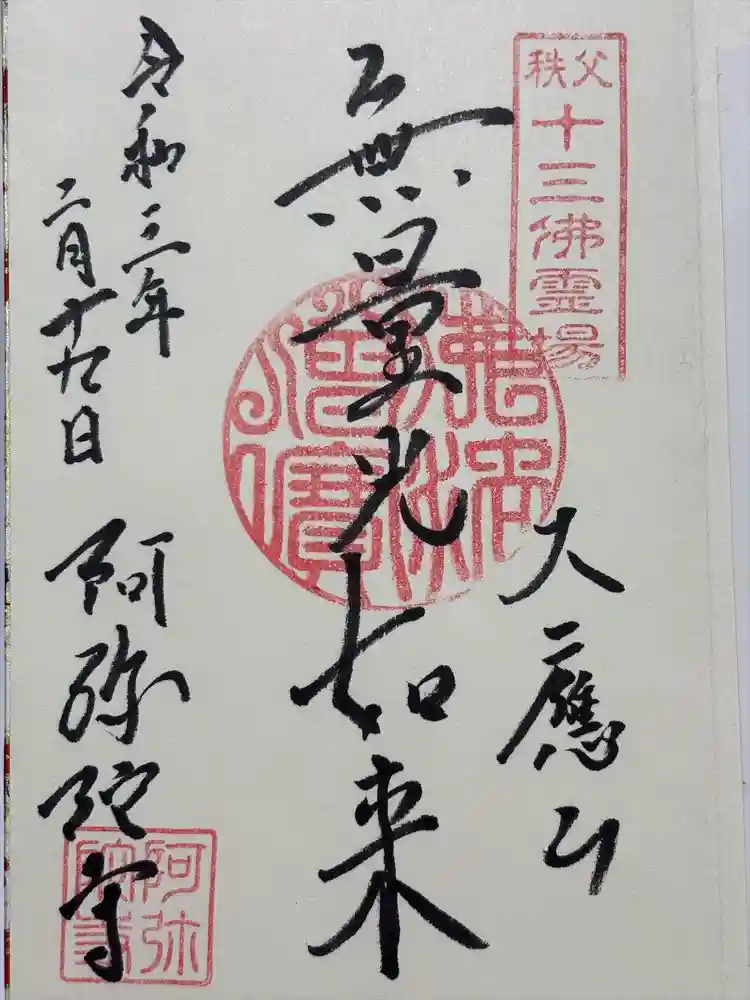 秩父
十三佛霊場
大應山
無量光如来
佛法僧寶
令和三年
二月十九日
阿弥陀寺
阿弥陀寺